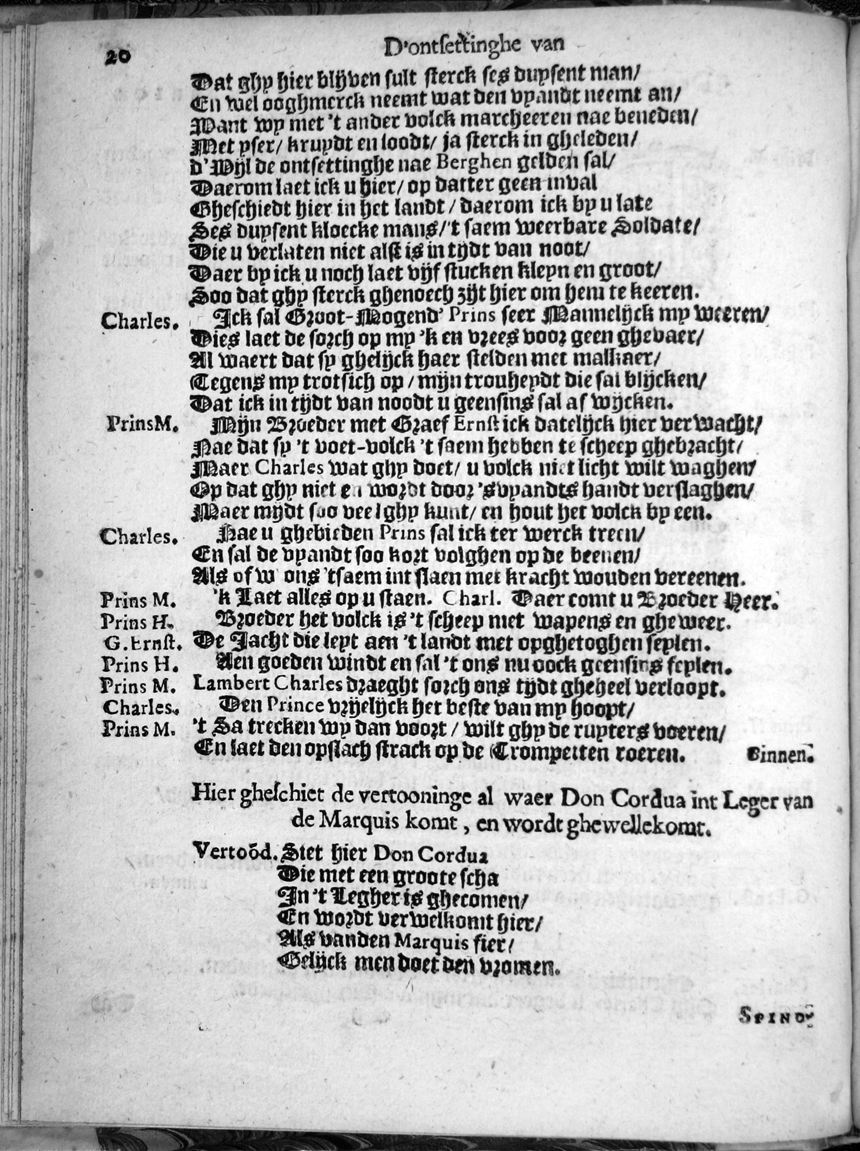 20 D'ontsettinghe van
Dat ghy hier blijven sult sterck ses duysent man/
En wel ooghmerck neemt wat den vyandt neemt an/
Want wy met 't ander volck marcheeren nae beneden/
Met yser/ kruydt en loodt/ ja sterck in gheleden/
d'Wijl de ontsettinghe nae Berghen gelden sal/
Daerom laet ick u hier/ op datter geen inval
Gheschiedt hier in het landt / daerom ick by u late
Ses duysent kloecke mans/'t saem weerbare Soldate/
Die u verlaten niet alst is in tijdt van noot/
Daer by ick u noch laet vijf stucken kleyn en groot/
Soo dat ghy sterck ghenoech zijt hier om hem te keeren.
Charles. Ick sal Groot-Mogend' Prins seer Mannelijck my weeren/
Dies laet de sorch op my 'k en vrees voor geen ghevaer/
Al waert dat sy ghelijck haer stelden met malkaer/
Tegens my trotsich op / mijn trouheydt die sal blijcken/
Dat ick in tijdt van noodt u geensins sal af wijcken.
PrinsM. Mijn Broeder met Graef Ernst ick datelijck hier verwacht/
Nae dat sy 't voet-volck 't saem hebben te scheep ghebracht/
Maer Charles wat ghy doet/ u volck niet licht wilt waghen/
Op dat ghy niet en wordt door 'svyandts handt verslaghen/
Maer mydt soo veel ghy kunt/ en hout het volck by een.
Charles. Nae u ghebieden Prins sal ick ter werck treen/
En sal de vyandt soo kort volghen op de beenen/
Als of w' ons 'tsaem int slaen met kracht wouden vereenen.
Prins M. 'k Laet alles op u staen. Charl. Daer comt u Broeder Heer.
Prins H. Broeder het volck is 't scheep met wapens en gheweer.
G.Ernst. De Jacht die leyt aen 't landt met opghetoghen seylen.
Prins H. Aen goeden windt en sal 't ons nu oock geensins feylen.
Prins M. Lambert Charles draeght sorch ons tijdt gheheel verloopt.
Charles. Den Prince vrijelijck het beste van my hoopt/
Prins M. 't Sa trecken wy dan voort / wilt ghy de ruyters voeren/
En laet den opslach strack op de Trompetten roeren. Binnen.
Hier gheschiet de vertooninge al waer Don Cordua int Leger van
de Marquis komt, en wordt ghewellekomt.
Vertoõd. Siet hier Don Cordua
Die met een groote scha
In 't Legher is ghecomen/
En wordt verwelkomt hier/
Als vanden Marquis fier/
Gelijck men doet den vromen.
SPINO-